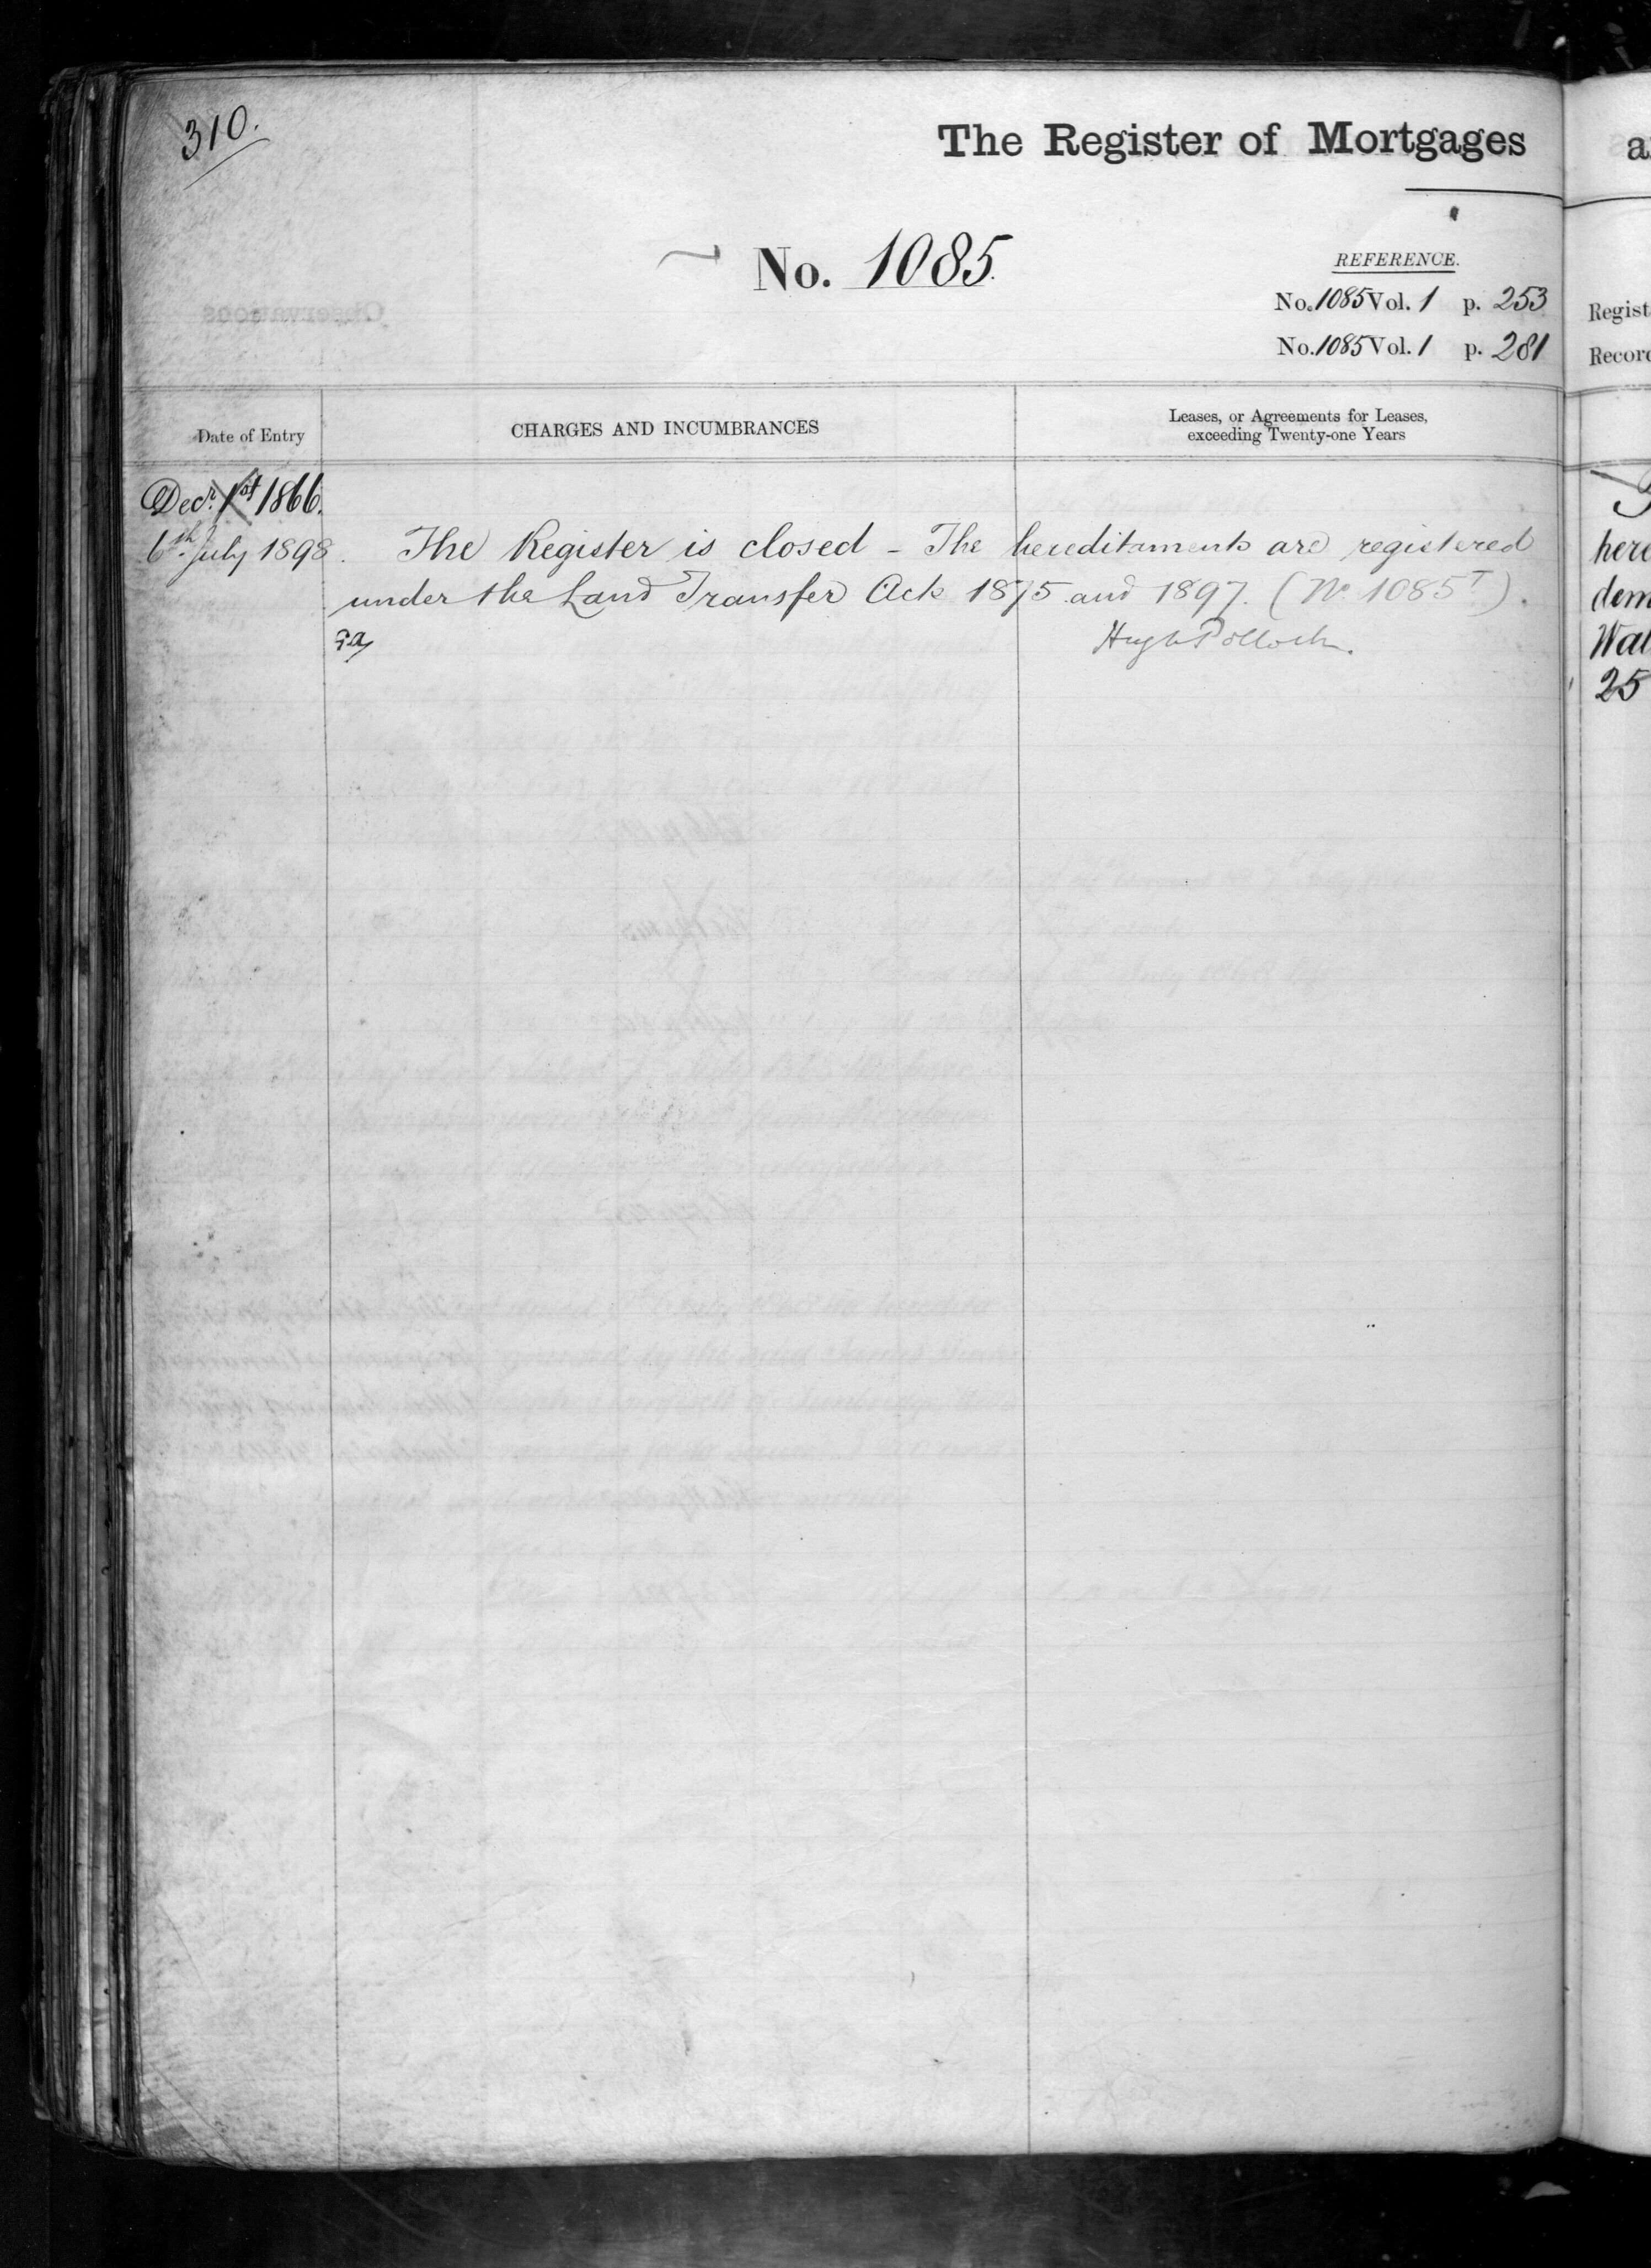 310.
The Register of Mortgages
No. 1085.
REFERENCE.
No. 1085 Vol. 1 p. 253
No. 1085 Vol. 1 p. 281
Regist
Record
Date of Entry
CHARGES AND INCUMBRANCES
Leases, or Agreements for Leases,
exceeding Twenty-one Years
Decr. 1st 1866.
6th July 1898. The Register is closed - The hereditaments are registered
under the Land Transfer Acts 1875 and 1897. (No 1085T).
Hugh Pollock.
here
dem
Wal
25